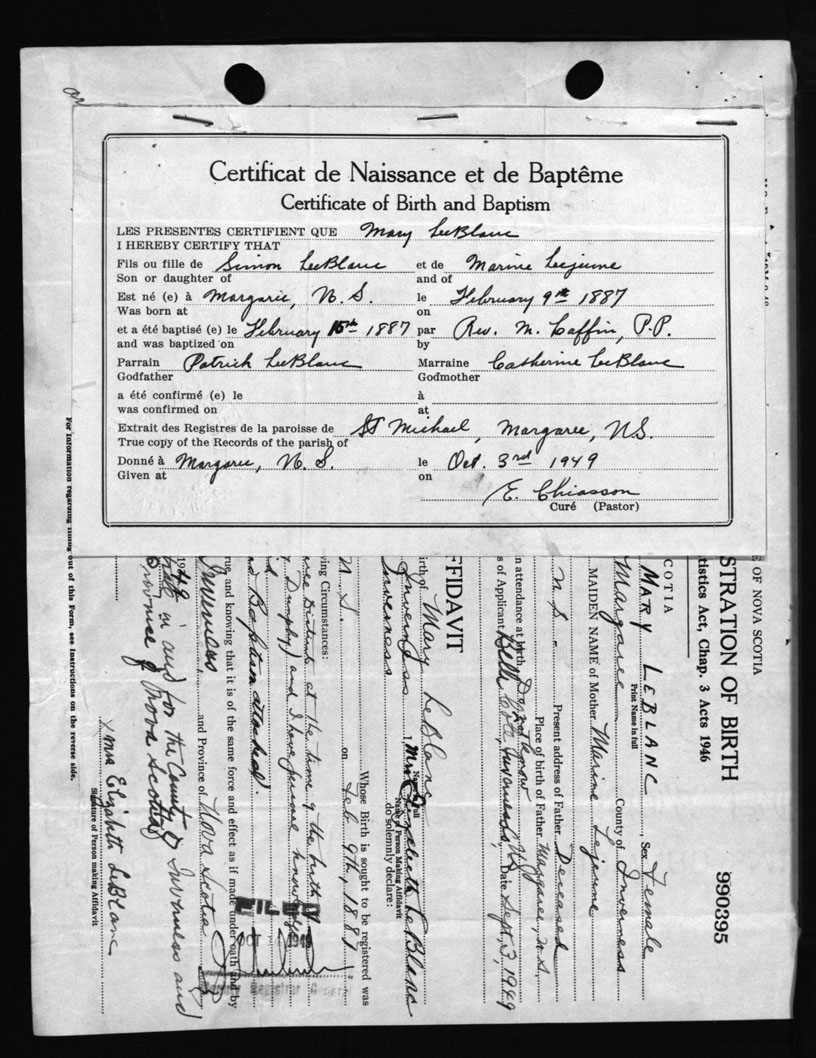 Certificat de Naissance et de Baptême
Certificate of Birth and Baptism
LES PRESENTES CERTIFIENT QUE Mary LeBlanc
I HEREBY CERTIFY THAT
Fils ou fille de Simon LeBlanc et de Marine Lejeune
Son or daughter of and of
Est né (e) à Margarie, N. S. le February 9th 1887
Was born at on
et a été baptisé (e) le February 15th 1887 par Rev. M. Laffin, P.P.
and was baptized on by
Parrain Patrick LeBlanc Marraine Catherine LeBlanc
Godfather Godmother
a été confirmé (e) le à
was confirmed on at
Extrait des Registres de la paroisse de St Michael, Margaree, N.S.
True copy of the Records of the parish of
Donné à Margaree, N. S. le Oct. 3rd 1949
Given at on
E. Chiasson
Curé (Pastor)
E OF NOVA SCOTIA
STRATION OF BIRTH
990395
tistics Act, Chap. 3 Acts 1946
COTIA
MARY LEBLANC, Sex Female
Print Name in full
Margaree County of Inverness
MAIDEN NAME of Mother Marine Lejeune
N. S. Present address of Father Deceased
Place of birth of Father Margaree, N.S.
n attendance at birth
s of Applicant Belle Cote, Inverness, NS Date Sept, 3, 1949
FFIDAVIT
irth of Mary LeBlanc
I, Mrs Elizabeth LeBlanc
Name in Full
Name of Person Making Affidavit
Inverness do solemnly declare:
Whose Birth is sought to be registered was
N. S. on Feb. 9th, 1887
ving Circumstances:
at the time of the birth
and I have personal knowledge
Baptism attached.
rue, and knowing that it is of the same force and effect as if made under oath and by
Inverness and Province of Nova Scotia
1949 in and for the County of Inverness and
Province of Nova Scotia
FILED
OCT 1949
x Mrs Elizabeth LeBlanc
Signature of Person making Affidavit
For information regarding out of this Form, see Instructions on the reverse side.